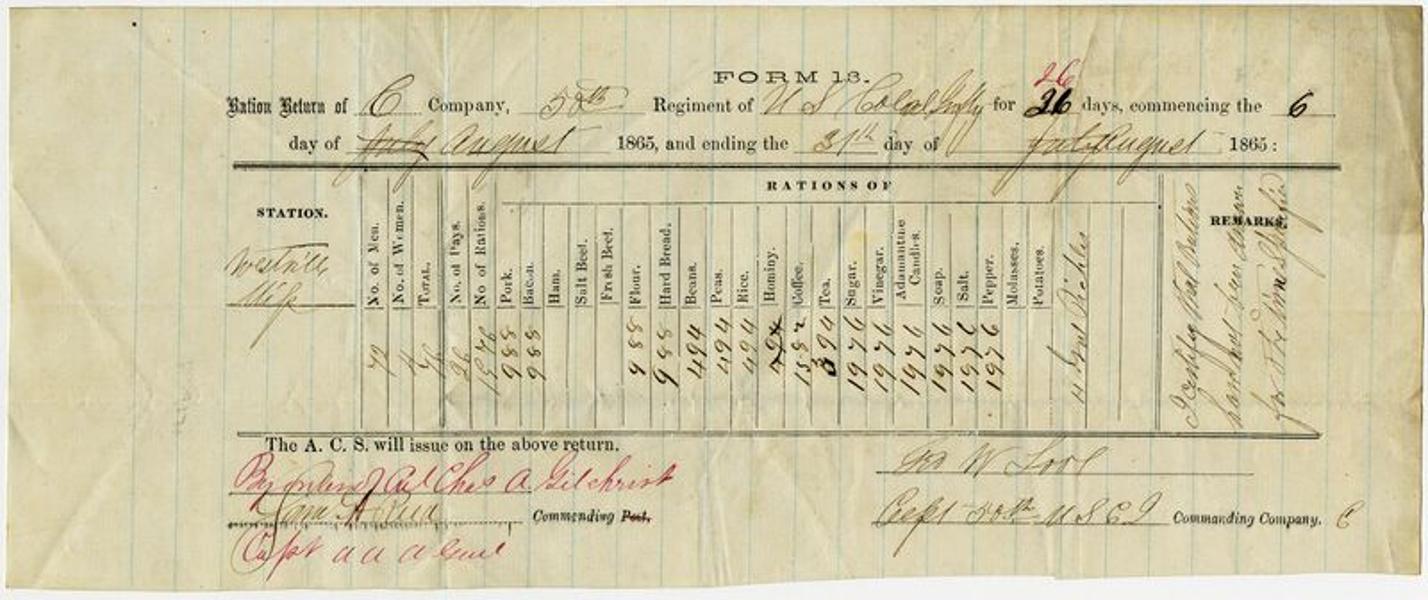 FORM 13.
26
Ration Return of C Company, 50th Regiment of U S Cold Infty for 26 days, commencing the 6
day of July August 1865, and ending the 31th day of July August 1865:
RATIONS OF
STATION. No. of Men. No. of Women. TOTAL. No. of Days. No of Rations. Pork. Bacon. Ham. Salt Beef. Fresh Beef. Flour. Hard Bread. Beans. Peas. Rice. Hominy. Coffee. Tea. Sugar. Vinegar. Adamantine Candles. Soap. Salt. Pepper. Molasses. Potatoes. Pickles REMARKS.
Miss 72 4 76 26 1976 988 988 988 988 494 494 494 494 1582 394 1976 1976 1976 1976 1976 1976
I certify that Rations
for the time Specified
The A. C. S. will issue on the above return.
By order of Col Chas A. Gilchrist
W
Commending Post,
Capt 50th U S C I Commanding Company. C
Capt a a a Genl